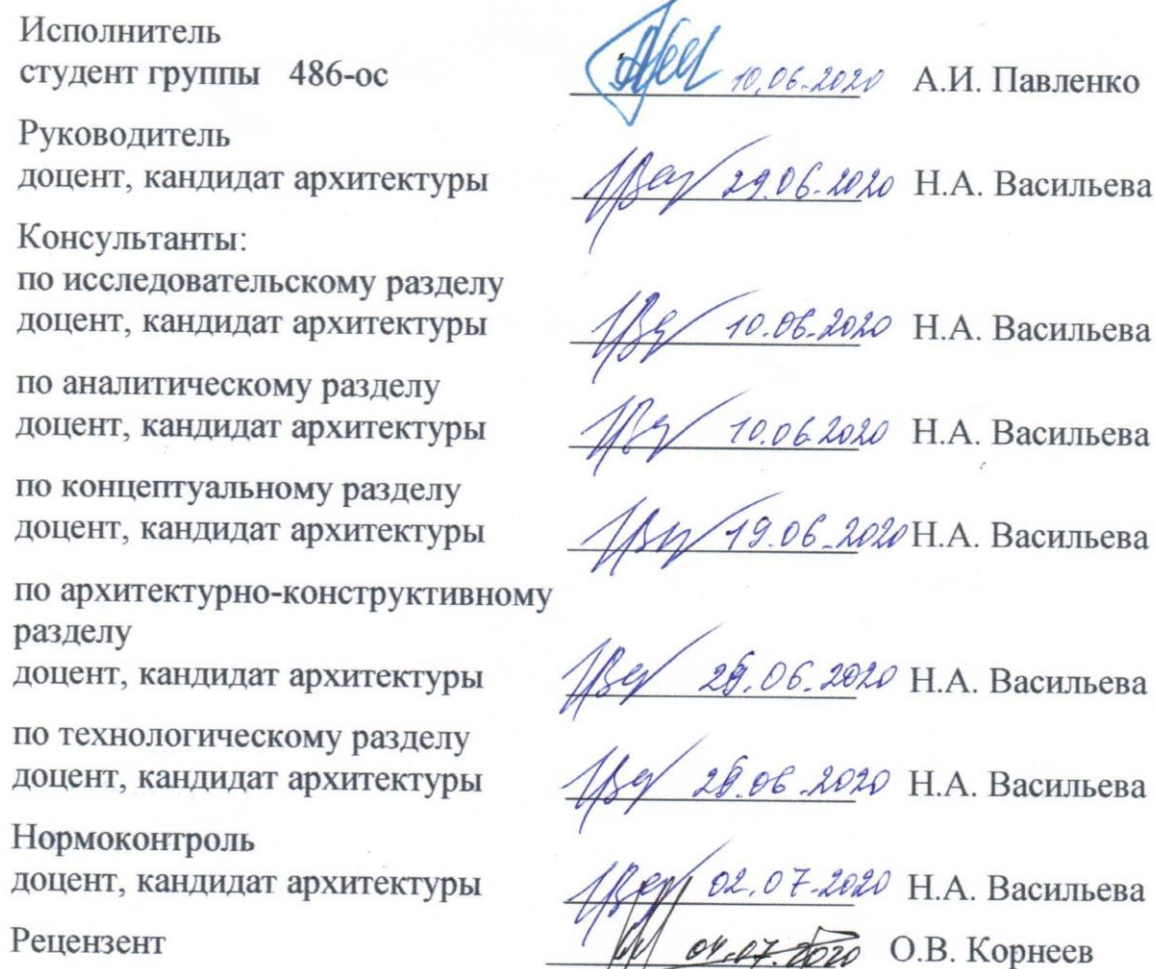 Исполнитель
студент группы 486-ос 10.06.2020 А.И. Павленко
Руководитель
доцент, кандидат архитектуры 29.06.2020 Н.А. Васильева
Консультанты:
по исследовательскому разделу
доцент, кандидат архитектуры 10.06.2020 Н.А. Васильева
по аналитическому разделу
доцент, кандидат архитектуры 10.06.2020 Н.А. Васильева
по концептуальному разделу
доцент, кандидат архитектуры 19.06.2020 Н.А. Васильева
по архитектурно-конструктивному
разделу
доцент, кандидат архитектуры Н.А. Васильева
по технологическому разделу
доцент, кандидат архитектуры Н.А. Васильева
Нормоконтроль
доцент, кандидат архитектуры 02.07.2020 Н.А. Васильева
Рецензент 04.07.2020 О.В. Корнеев